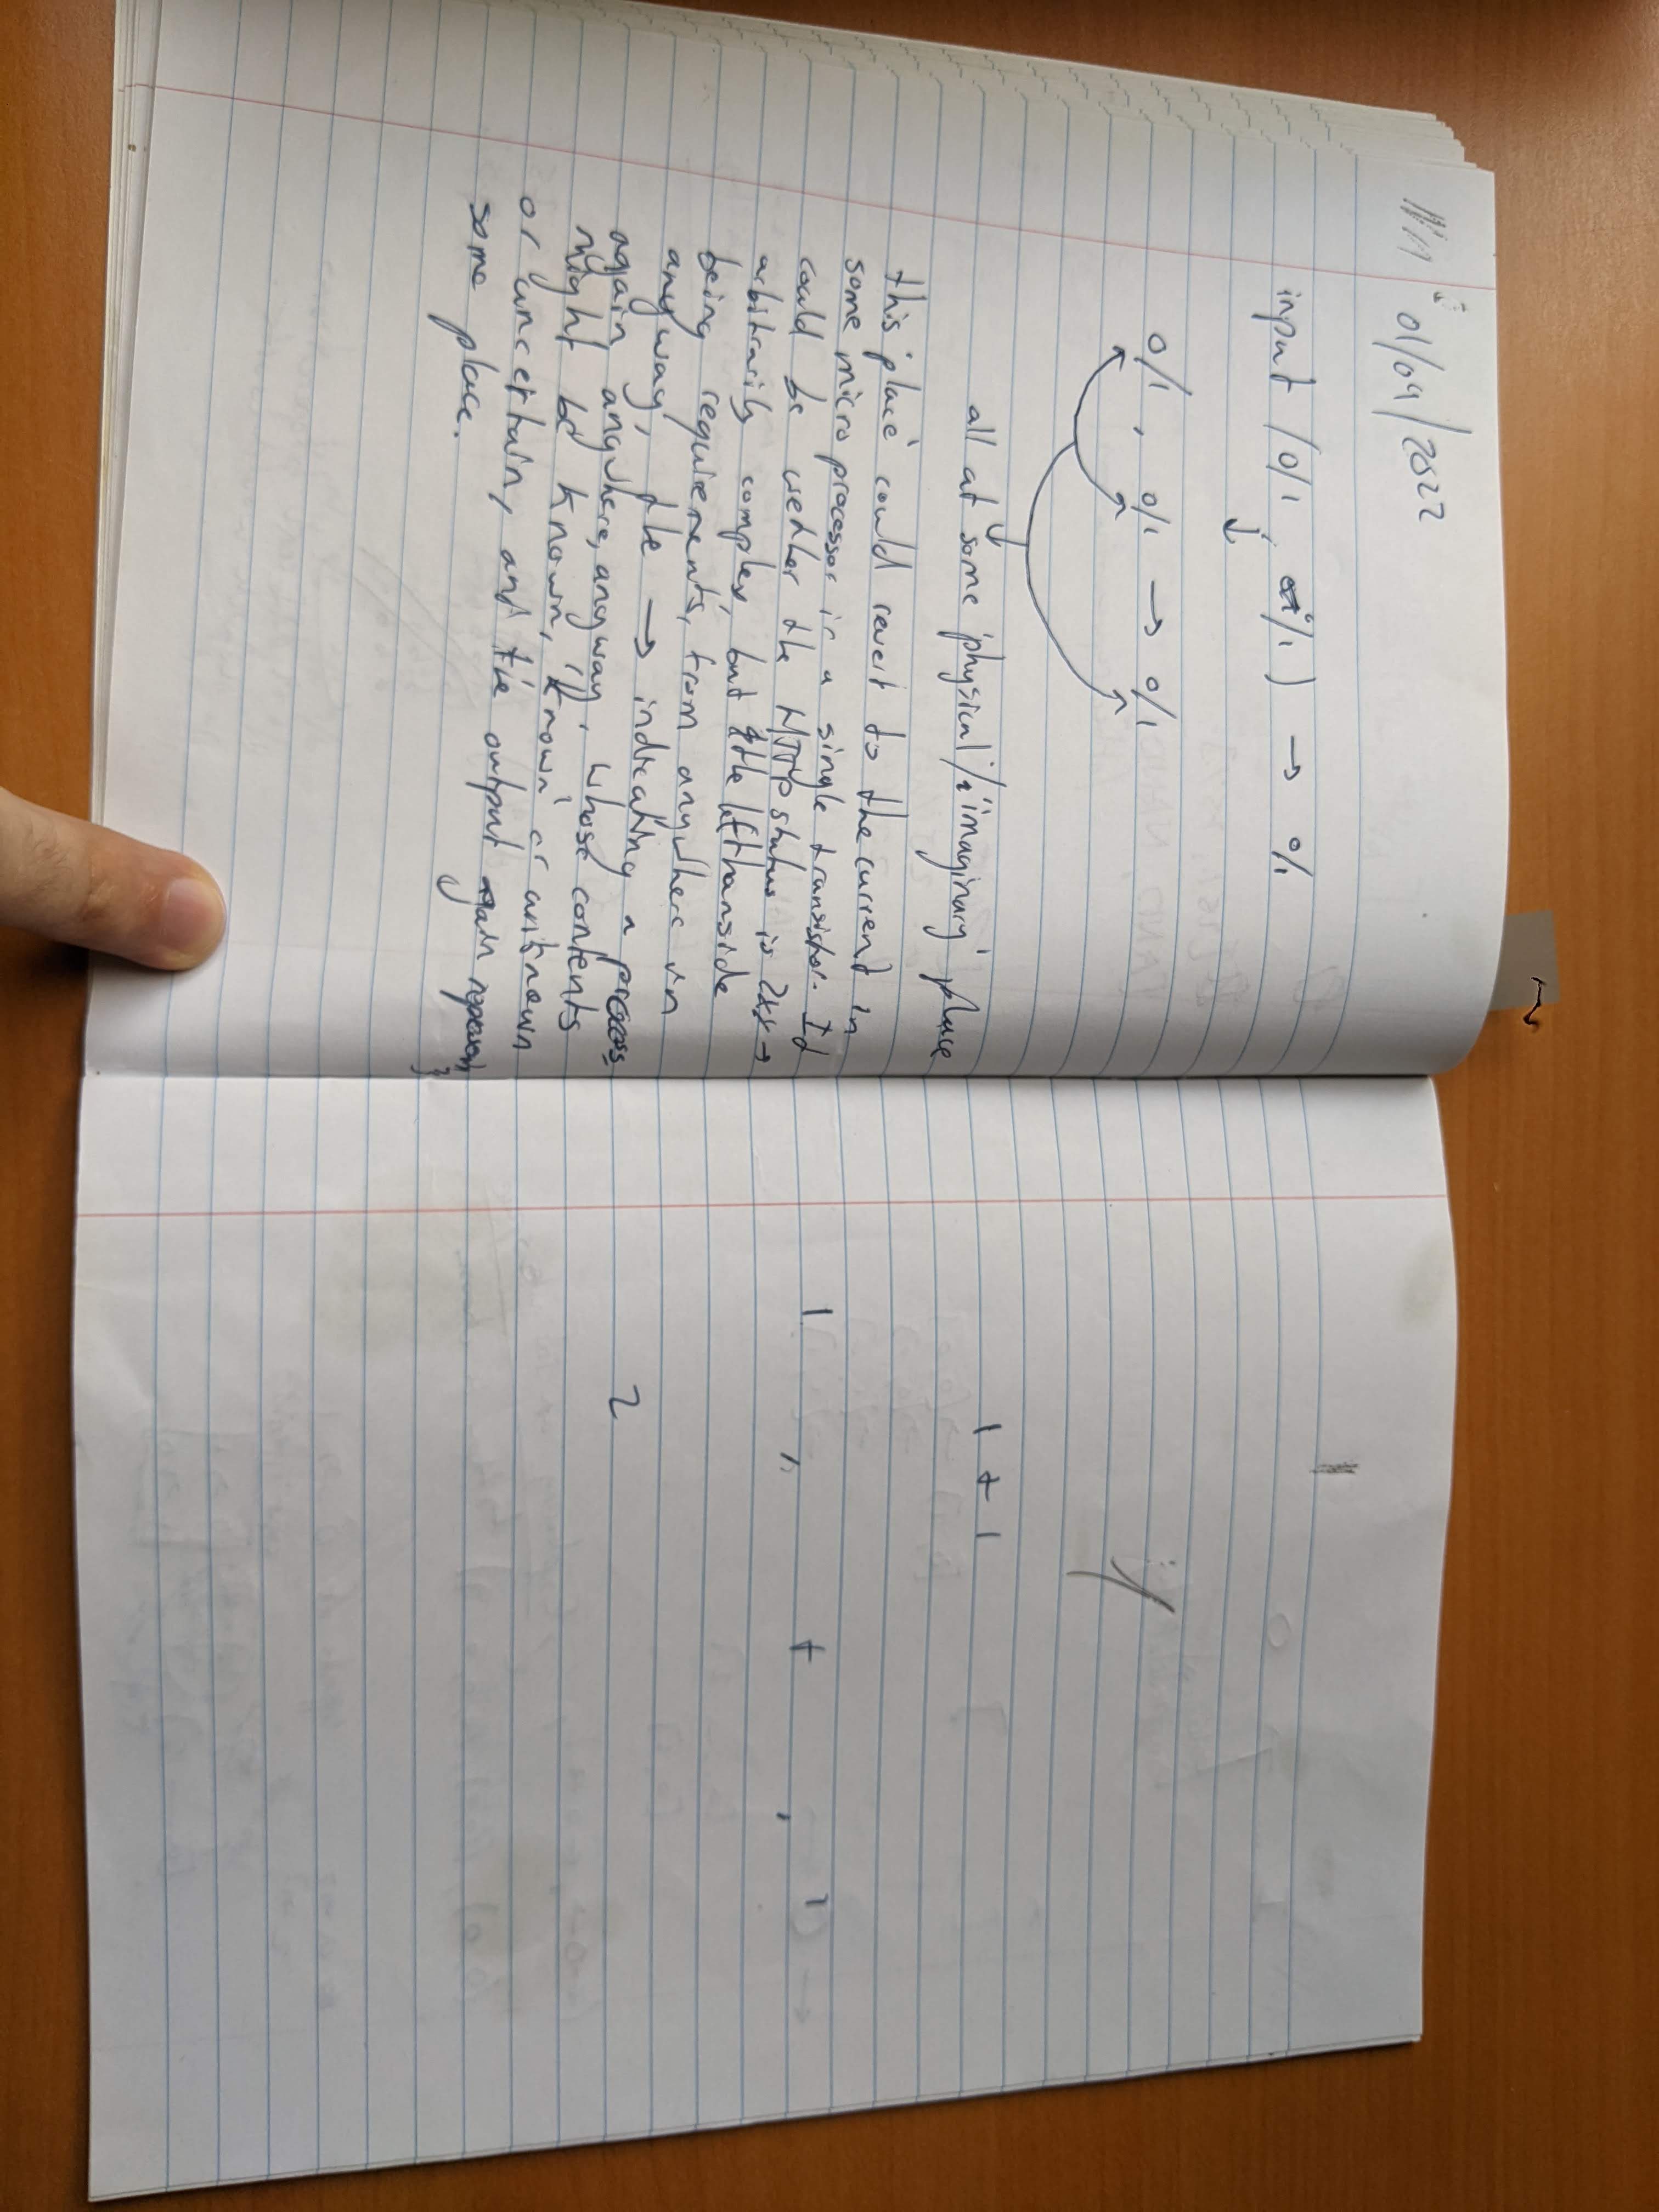 01/04/2022
input (0/1, 0/1) → 0/1
0/1 , 0/1 → 0/1
all at some physical/'imaginary' place
'this place' could revert to the current in
some micro processor in a single transistor. It
could be wether the HTTP status is 2xx →
arbitrarily complex, but the left hand side
being requirements, from anywhere in
anyway, the → indicating a process
again anywhere, anyway, whose contents
might be known, 'known' or unknown
or uncertain, and the output again
some place.
1 + 1
1 , + , 1
2